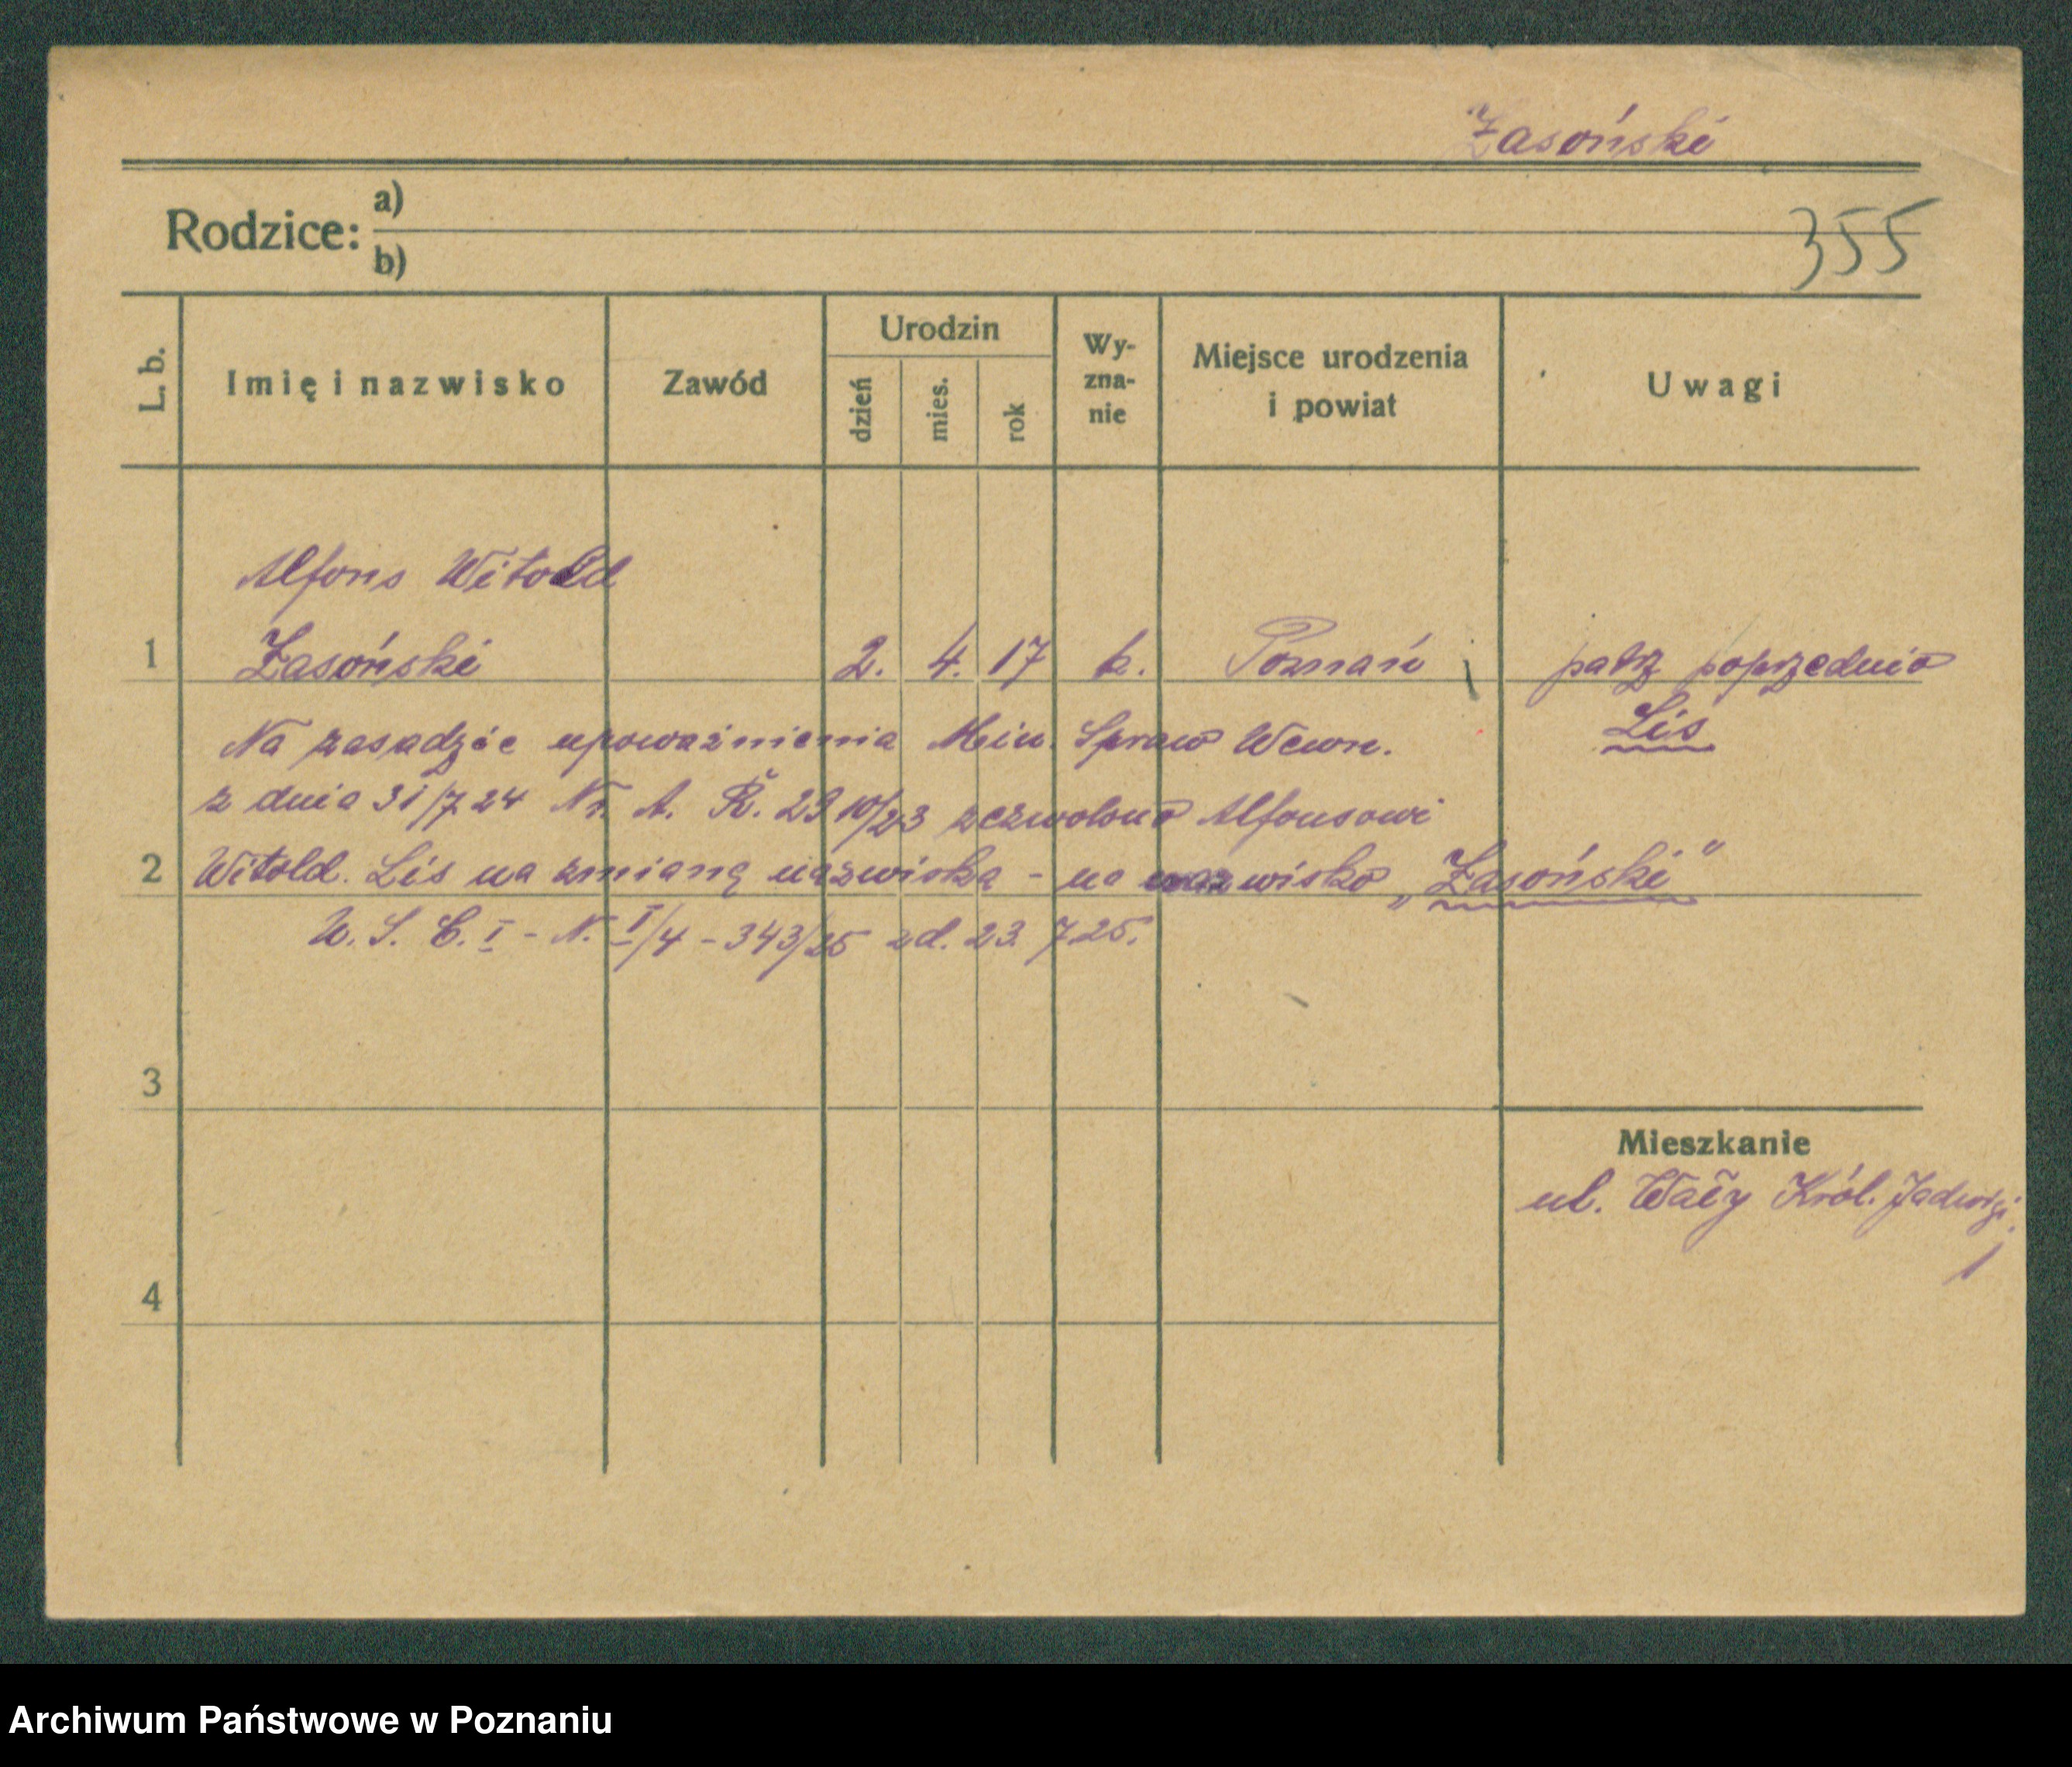 Żasoński
Rodzice: a)
b)
355
L. b.
Imię i nazwisko
Zawód
Urodzin
dzień
mies.
rok
Wy-
zna-
nie
Miejsce urodzenia
i powiat
Uwagi
Alfons Witold
1 Żasoński 2. 4. 17 k. Poznań patrz poprzednio
Lis
Na zasadzie upoważnienia Min. Spraw Wewn.
z dnia 31/7 24 Nr. A. R. 2910/23 zezwolono Alfonsowi
2 Witold. Lis na zmianę nazwiska - na nazwisko „Żasoński"
U. S. C. I - N. I/4 - 343/25 z d. 23. 7 25.
3
Mieszkanie
ul. Wały Król. Jadwigi
1
4
Archiwum Państwowe w Poznaniu